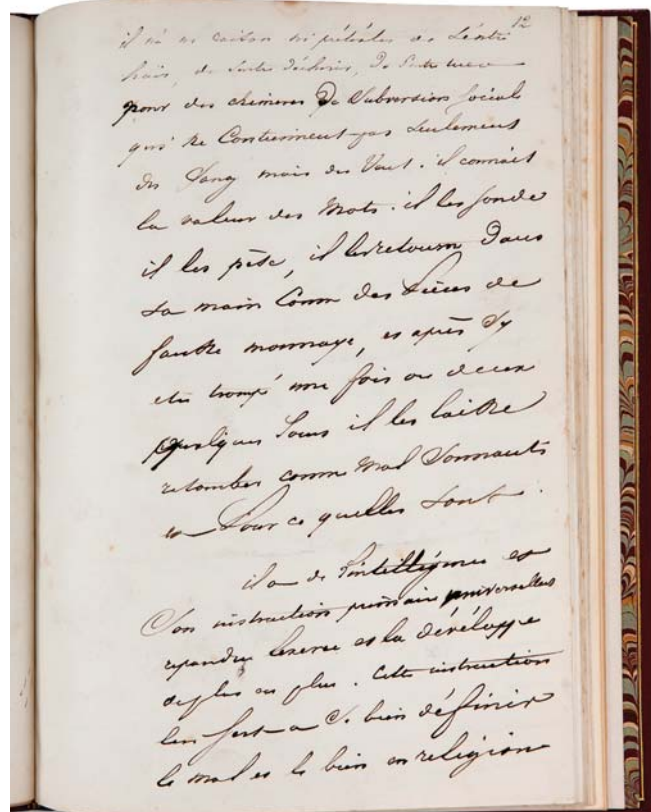 12
il n'a ni raison ni prétexte de s'entre
haïr, de s'entre déchirer, de s'entre tuer
pour des chimeres de Subversion social
qui ne Contiennent pas seulement
du Sang mais du Vent. il connait
la valeur des Mots. il les sonde
il les pèse, il les retourne Dans
sa main Comme des Pièces de
fausse monnaye, et après s'y
etre trompé une fois ou deux
quelques Jours il les laisse
retomber comme Mal Sonnants
et Pour ce quelles sont.
il a de l'intelligence et
Son instruction primaire universellement
repandue l'exerce et la développe
de plus en plus. Cette instruction
lui sert a bien définir
le mal et le bien en religion